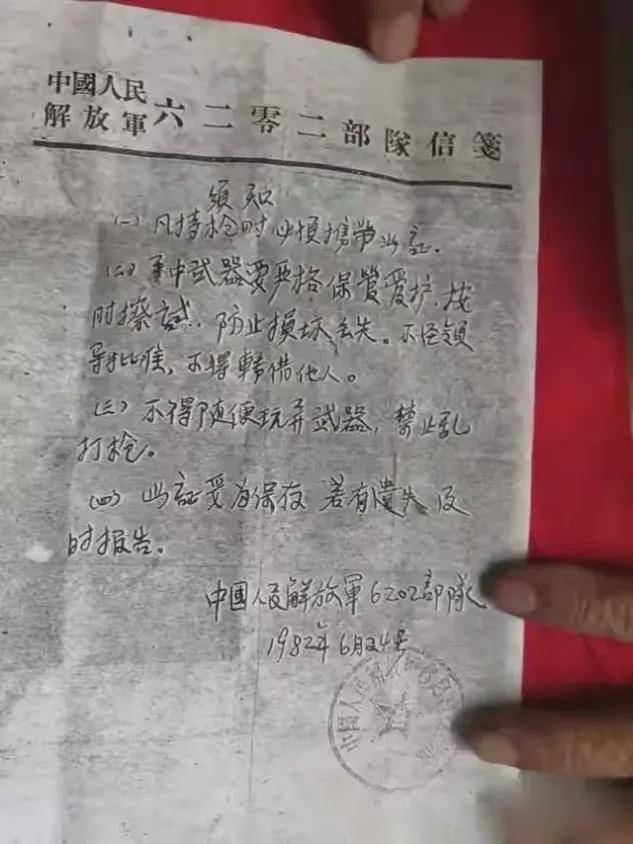 中國人民
解放軍六二零二部隊信箋
須知
(一)凡持枪时必須携带此証.
(二)手中武器要严格保管爱护,按
时擦试,防止損坏丢失。不经領
导批准,不得轉借他人。
(三)不得随便玩弄武器,禁止乱
打枪。
(四)此証要好保存 若有遺失及
时报告。
中國人民解放軍6202部隊
1982年6月24号
中國人民解